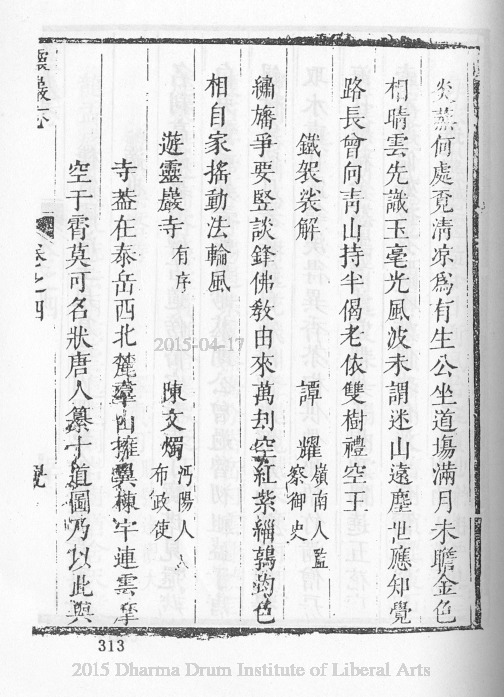 炎蒸何處覓清凉爲有生公坐道塲滿月未瞻金色
相晴雲先識玉毫光風波未謂迷山遠塵世應知覺
路長曾向靑山持半偈老依雙樹禮空王
鐵袈裟解 譚耀 嶺南人監察御史
繡旛爭要竪談鋒佛敎由來萬刧空紅紫緇鶉
色
相自家搖動法輪風
遊靈巖寺 有序 陳文燭 沔陽人布政使
寺葢在泰岳西北麓羣山擁翼棟宇連雲摩
空于霄莫可名狀唐人纂十道圖乃以此與
靈巖
卷之四
2015-04-17
313
2015 Dharma Drum Institute of Liberal Arts